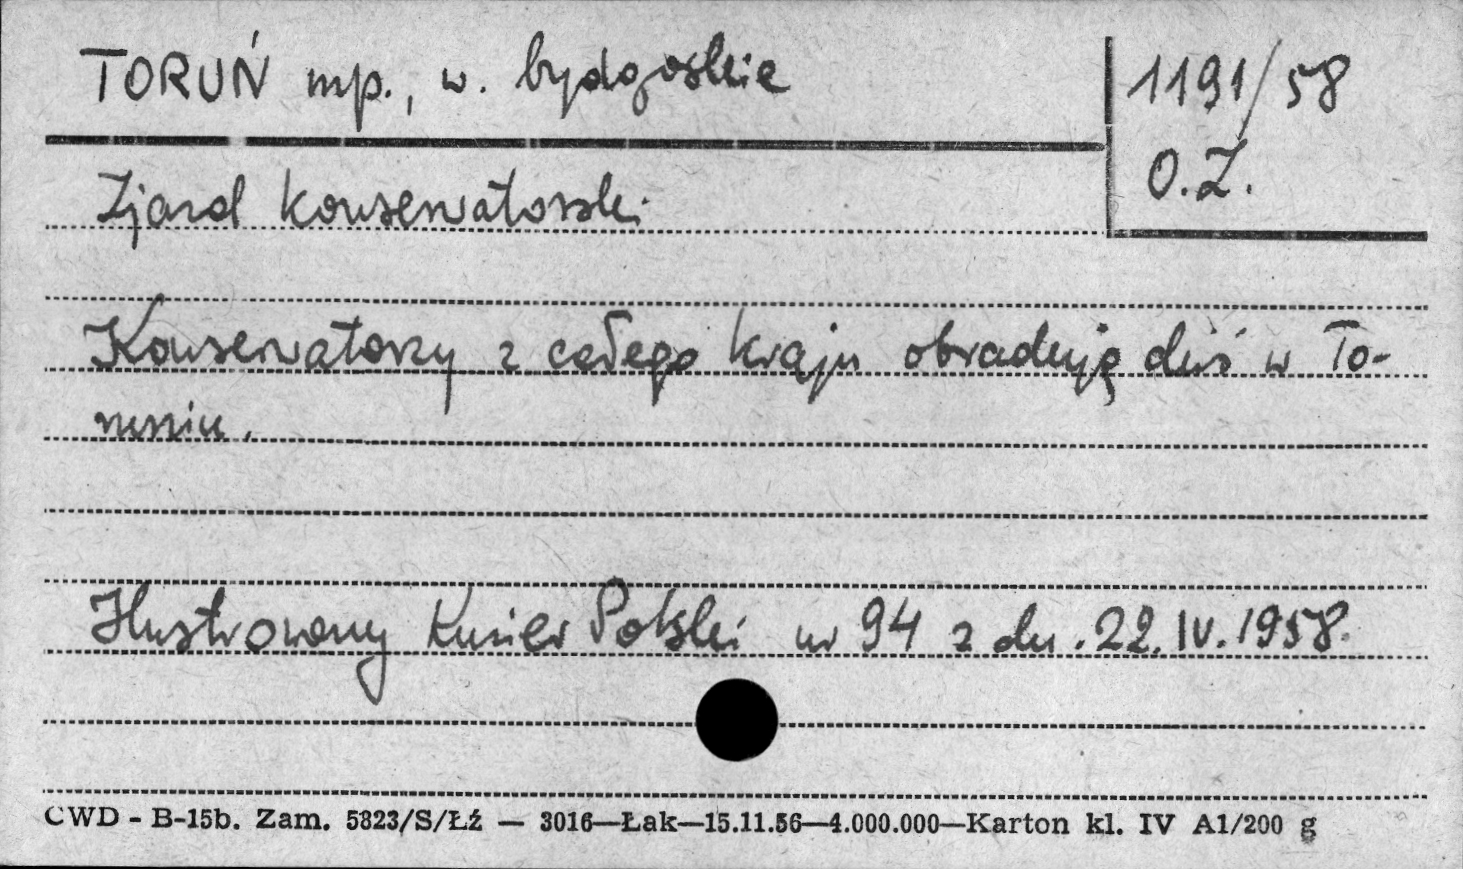 TORUŃ mp., w. bydgoskie
1191/58
O.Z.
Zjazd konserwatorski
Konserwatorzy z całego kraju obradują dziś w To-
runiu.
Ilustrowany Kurier Polski nr 94 z dn. 22. IV. 1958.
CWD - B-15b. Zam. 5323/S/Łź — 3016—Łak—15.11.56—4.000.000—Karton kl. IV A1/200 g